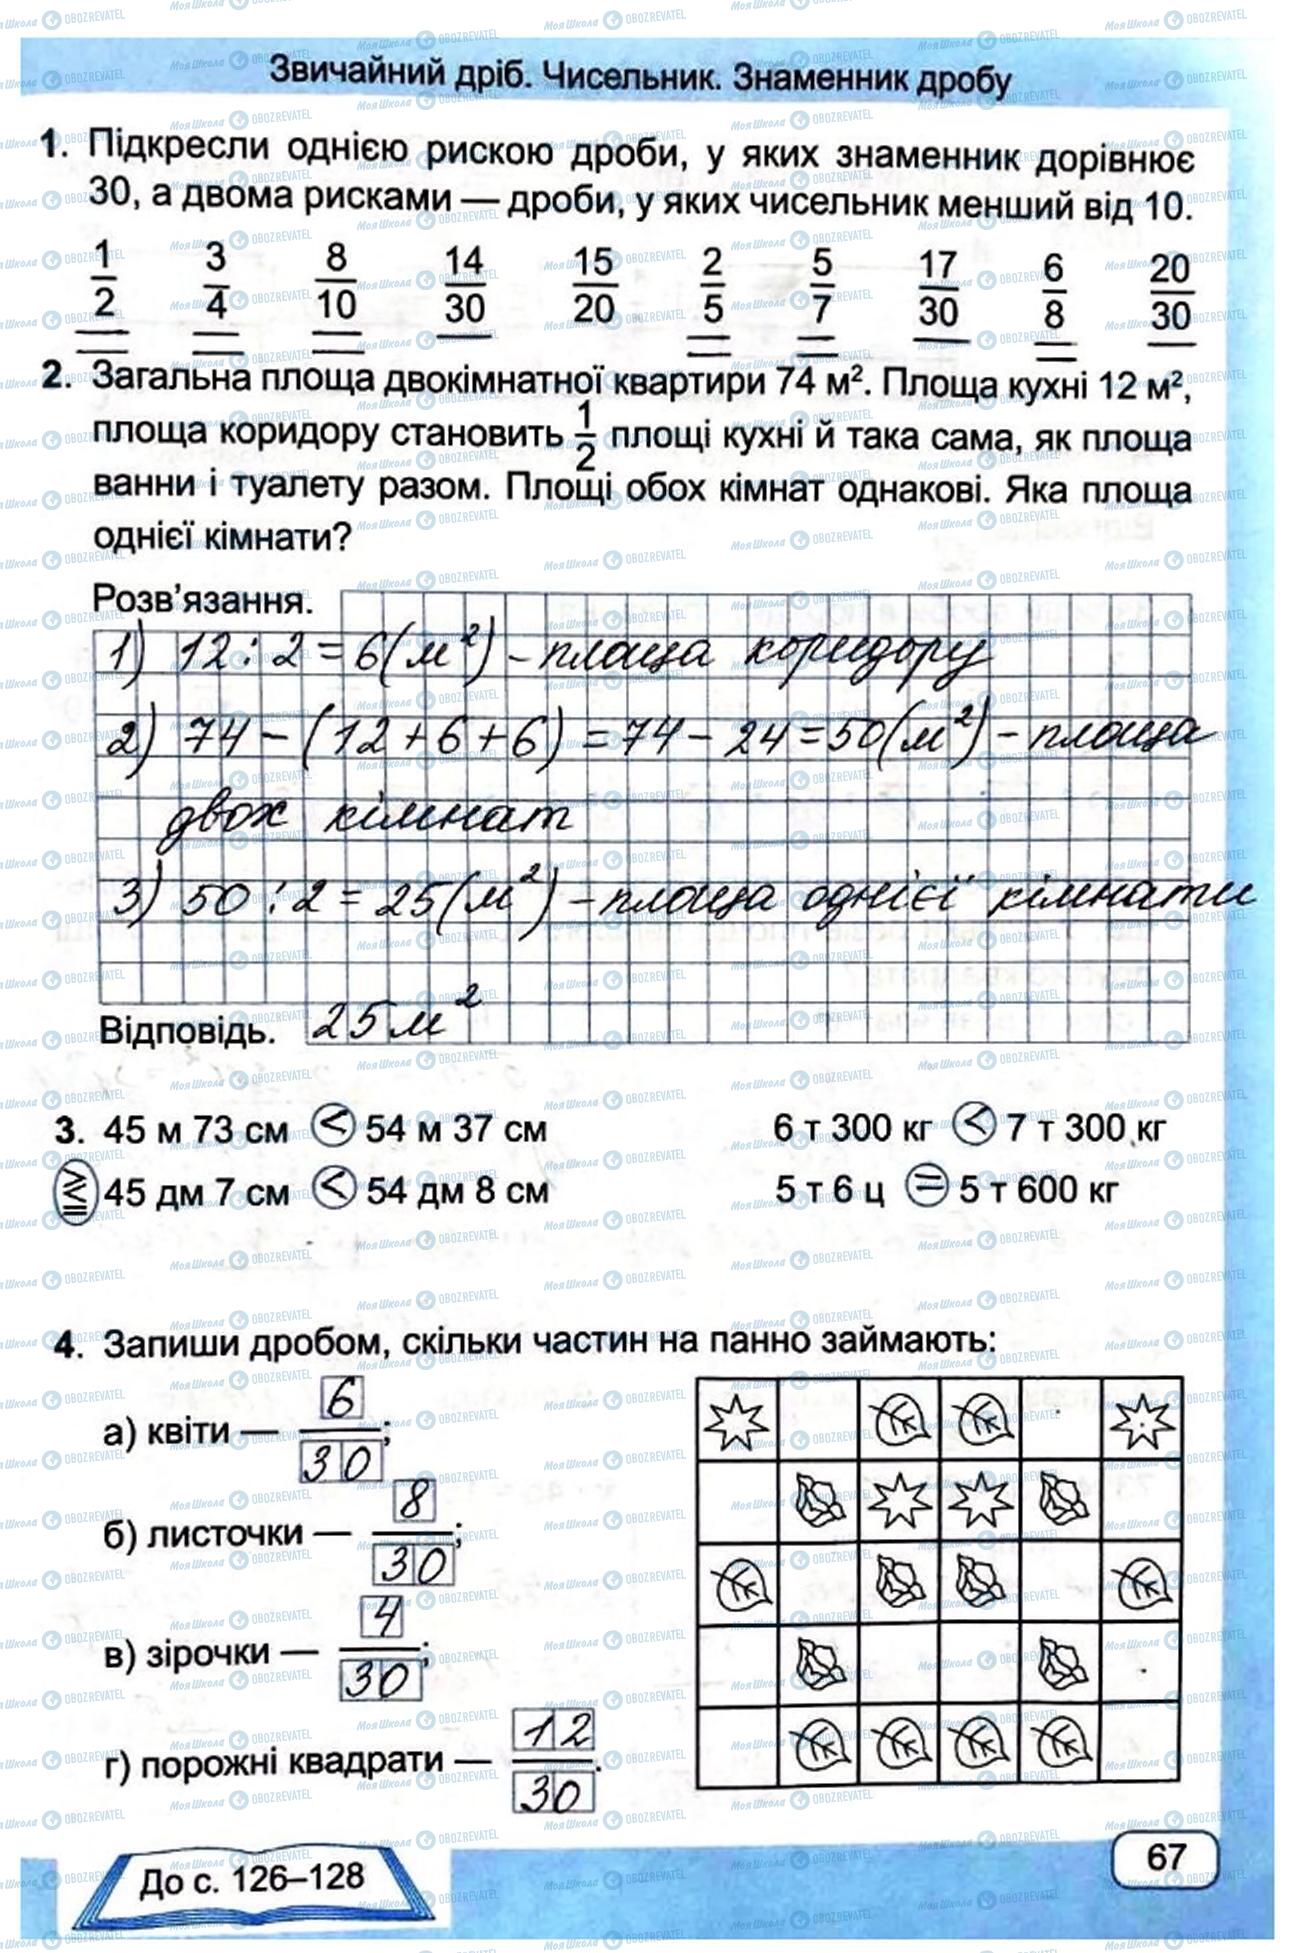 Звичайний дріб. Чисельник. Знаменник дробу
1. Підкресли однією рискою дроби, у яких знаменник дорівнює
30, а двома рисками — дроби, у яких чисельник менший від 10.
1/2 3/4 8/10 14/30 15/20 2/5 5/7 17/30 6/8 20/30
2. Загальна площа двокімнатної квартири 74 м². Площа кухні 12 м²,
площа коридору становить 1/2 площі кухні й така сама, як площа
ванни і туалету разом. Площі обох кімнат однакові. Яка площа
однієї кімнати?
Розв'язання.
1) 12 : 2 = 6 (м²) – площа коридору
2) 74 – (12 + 6 + 6) = 74 – 24 = 50 (м²) – площа
двох кімнат
3) 50 : 2 = 25 (м²) – площа однієї кімнати
Відповідь. 25 м²
3. 45 м 73 см < 54 м 37 см 6 т 300 кг < 7 т 300 кг
45 дм 7 см < 54 дм 8 см 5 т 6 ц = 5 т 600 кг
4. Запиши дробом, скільки частин на панно займають:
а) квіти — 6/30;
б) листочки — 8/30;
в) зірочки — 4/30;
г) порожні квадрати — 12/30.
До с. 126–128
67
МояШкола OBOZREVATEL